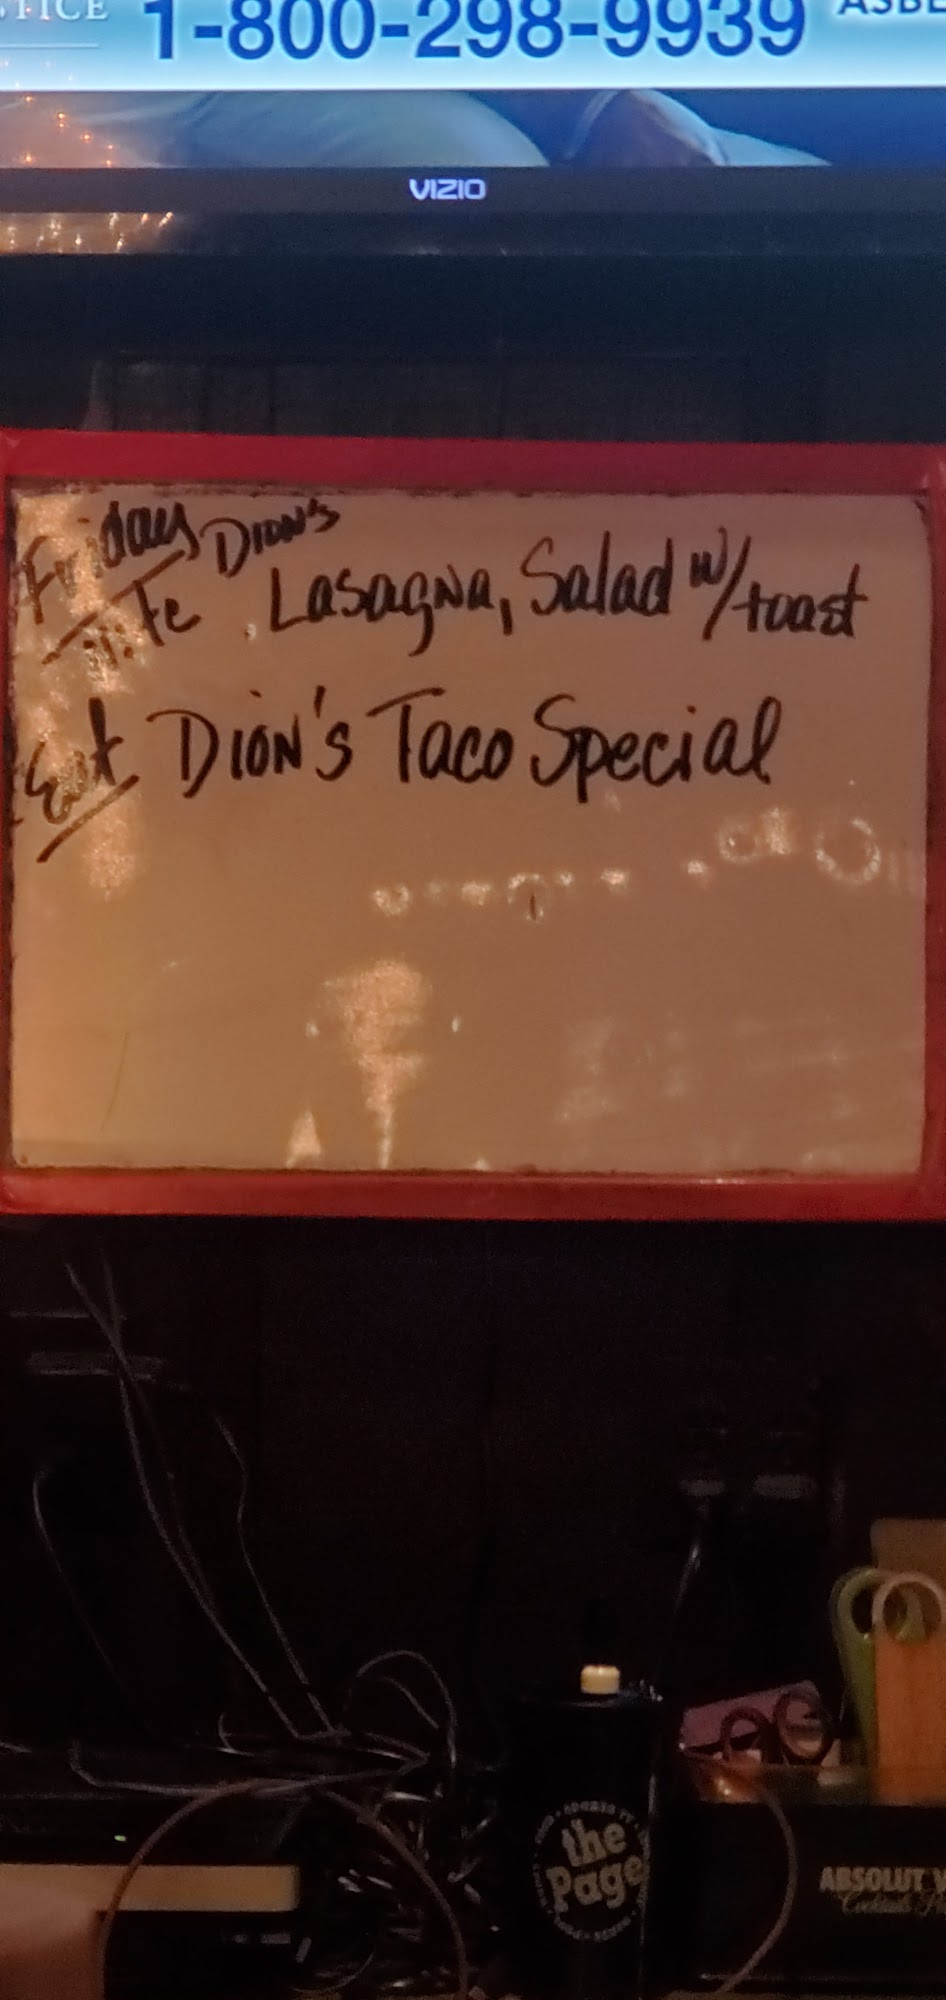 1-800-298-9939
VIZIO
Friday Dion's
Nite Lasagna, Salad w/toast
Dion's Taco Special
the
Page
ABSOLUT